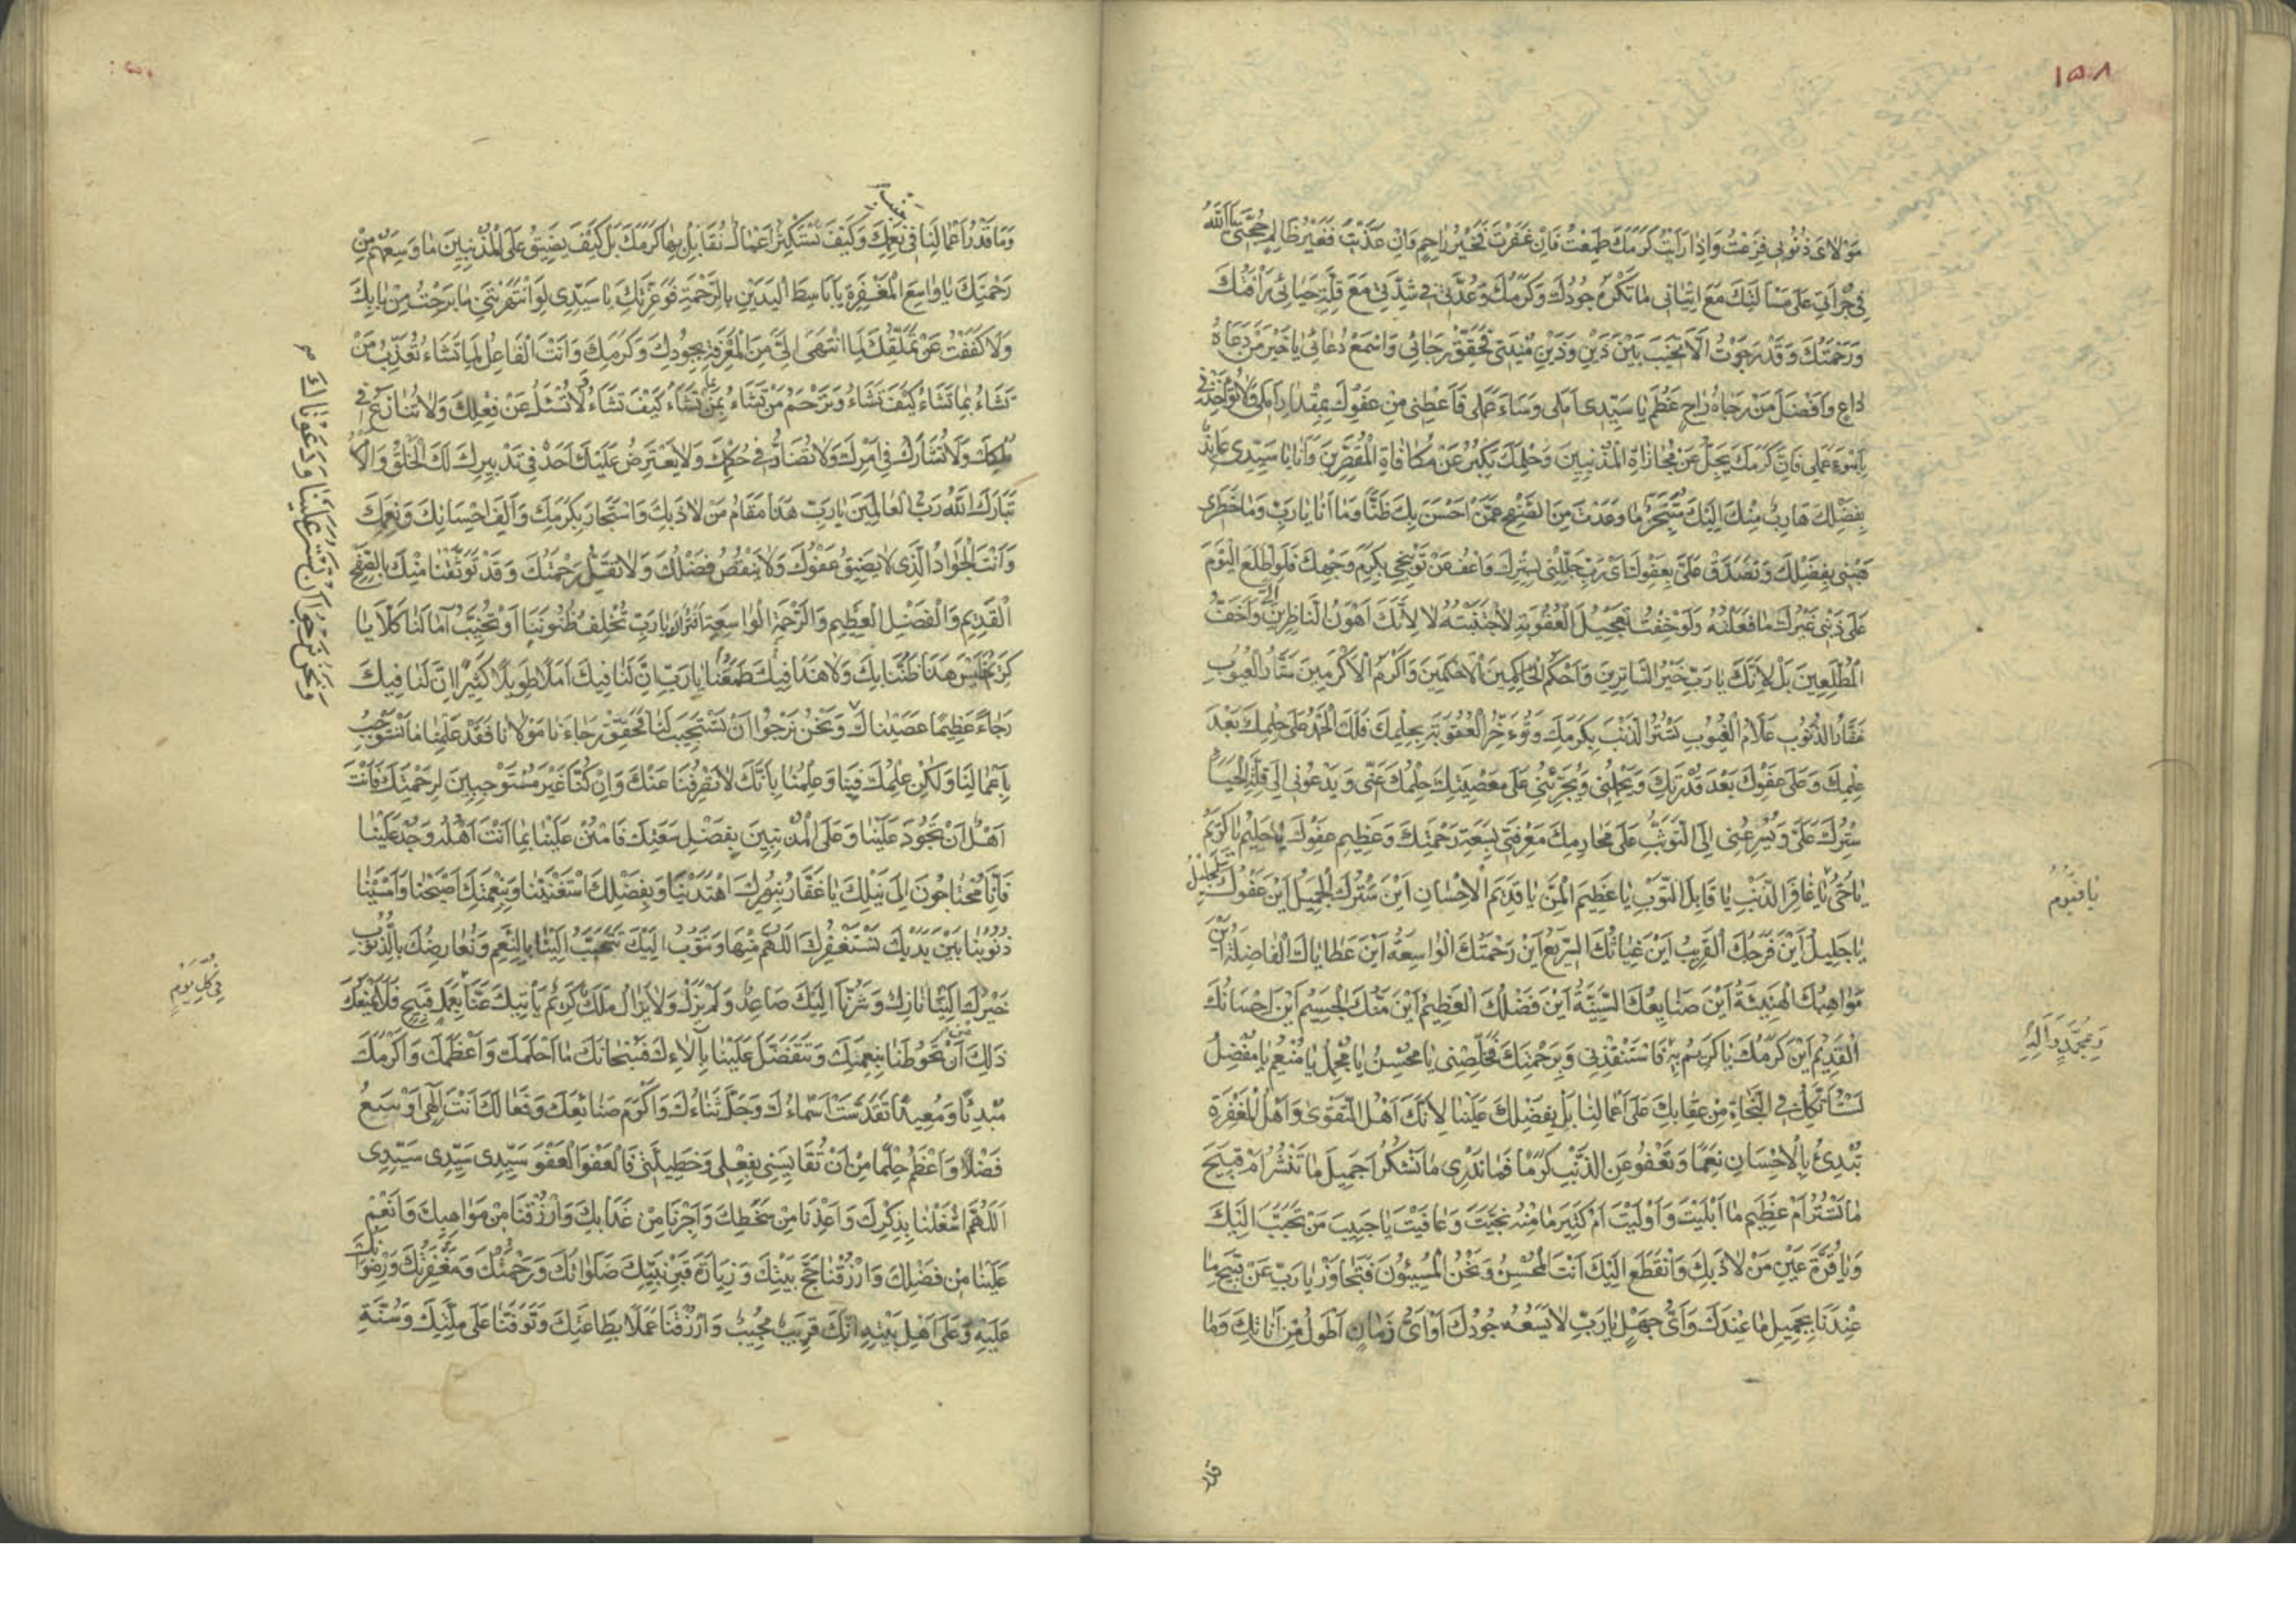 ١٥٨
مَوْلاىَ ذُنُوبى فَزِعْتُ وَاِذا رَاَيْتُ كَرَمَكَ طَمِعْتُ فَاِنْ غَفَرْتَ فَخَيْرُ راحِمٍ وَاِنْ عَذَّبْتَ فَغَيْرُ ظالِمٍ حُجَّتى يا اَللّهُ
فى جُرْاَتى عَلى مَسْاَلَتِكَ مَعَ اِتْيانى ما تَكْرَهُ جُودُكَ وَكَرَمُكَ وَعُدَّتى فى شِدَّتى مَعَ قِلَّةِ حَيائى رَاْفَتُكَ
وَرَحْمَتُكَ وَقَدْ رَجَوْتُ اَلّا تُخَيِّبَ بَيْنَ ذَيْنِ وَذَيْنِ مُنْيَتى فَحَقِّقْ رَجائى وَاسْمَعْ دُعائى يا خَيْرَ مَنْ دَعاهُ
داعٍ وَاَفْضَلَ مَنْ رَجاهُ راجٍ عَظُمَ يا سَيِّدى اَمَلى وَساءَ عَمَلى فَاَعْطِنى مِنْ عَفْوِكَ بِمِقْدارِ اَمَلى وَلا تُؤاخِذْنى
بِاَسْوَءِ عَمَلى فَاِنَّ كَرَمَكَ يَجِلُّ عَنْ مُجازاةِ الْمُذْنِبينَ وَحِلْمَكَ يَكْبُرُ عَنْ مُكافاةِ الْمُقَصِّرينَ وَاَنَا يا سَيِّدى عائِذٌ
بِفَضْلِكَ هارِبٌ مِنْكَ اِلَيْكَ مُتَنَجِّزٌ ما وَعَدْتَ مِنَ الصَّفْحِ عَمَّنْ اَحْسَنَ بِكَ ظَنًّا وَما اَنَا يا رَبِّ وَما خَطَرى
هَبْنى بِفَضْلِكَ وَتَصَدَّقْ عَلَىَّ بِعَفْوِكَ اَىْ رَبِّ جَلِّلْنى بِسِتْرِكَ وَاعْفُ عَنْ تَوْبيخى بِكَرَمِ وَجْهِكَ فَلَوِ اطَّلَعَ الْيَوْمَ
عَلى ذَنْبى غَيْرُكَ ما فَعَلْتُهُ وَلَوْ خِفْتُ تَعْجيلَ الْعُقُوبَةِ لَاجْتَنَبْتُهُ لا لِاَنَّكَ اَهْوَنُ النّاظِرينَ اِلَىَّ وَاَخَفُّ
الْمُطَّلِعينَ بَلْ لِاَنَّكَ يا رَبِّ خَيْرُ السّاتِرينَ وَاَحْكَمُ الْحاكِمينَ وَاَكْرَمُ الْاَكْرَمينَ سَتّارُ الْعُيُوبِ
غَفّارُ الذُّنُوبِ عَلّامُ الْغُيُوبِ تَسْتُرُ الذَّنْبَ بِكَرَمِكَ وَتُؤَخِّرُ الْعُقُوبَةَ بِحِلْمِكَ فَلَكَ الْحَمْدُ عَلى حِلْمِكَ بَعْدَ
عِلْمِكَ وَعَلى عَفْوِكَ بَعْدَ قُدْرَتِكَ وَيَحْمِلُنى وَيُجَرِّئُنى عَلى مَعْصِيَتِكَ حِلْمُكَ عَنّى وَيَدْعُونى اِلى قِلَّةِ الْحَياءِ
سِتْرُكَ عَلَىَّ وَيُسْرِعُنى اِلَى التَّوَثُّبِ عَلى مَحارِمِكَ مَعْرِفَتى بِسَعَةِ رَحْمَتِكَ وَعَظيمِ عَفْوِكَ يا حَليمُ يا كَريمُ
يا حَىُّ يا غافِرَ الذَّنْبِ يا قابِلَ التَّوْبِ يا عَظيمَ الْمَنِّ يا قَديمَ الْاِحْسانِ اَيْنَ سَتْرُكَ الْجَميلُ اَيْنَ عَفْوُكَ الْجَليلُ
يا قَيُّومُ
يا جَليلُ اَيْنَ فَرَجُكَ الْقَريبُ اَيْنَ غِياثُكَ السَّريعُ اَيْنَ رَحْمَتُكَ الْواسِعَةُ اَيْنَ عَطاياكَ الْفاضِلَةُ اَيْنَ
مَواهِبُكَ الْهَنيئَةُ اَيْنَ صَنايِعُكَ السَّنِيَّةُ اَيْنَ فَضْلُكَ الْعَظيمُ اَيْنَ مَنُّكَ الْجَسيمُ اَيْنَ اِحْسانُكَ
الْقَديمُ اَيْنَ كَرَمُكَ يا كَريمُ بِهِ فَاسْتَنْقِذْنى وَبِرَحْمَتِكَ فَخَلِّصْنى يا مُحْسِنُ يا مُجْمِلُ يا مُنْعِمُ يا مُفْضِلُ
وَبِمُحَمَّدٍ وَآلِهِ
لَسْنا نَتَّكِلُ فِى النَّجاةِ مِنْ عِقابِكَ عَلى اَعْمالِنا بَلْ بِفَضْلِكَ عَلَيْنا لِاَنَّكَ اَهْلُ التَّقْوى وَاَهْلُ الْمَغْفِرَةِ
تُبْدِئُ بِالْاِحْسانِ نِعَمًا وَتَعْفُو عَنِ الذَّنْبِ كَرَمًا فَما نَدْرى ما نَشْكُرُ اَجَميلَ ما تَنْشُرُ اَمْ قَبيحَ
ما تَسْتُرُ اَمْ عَظيمَ ما اَبْلَيْتَ وَاَوْلَيْتَ اَمْ كَثيرَ ما مِنْهُ نَجَّيْتَ وَعافَيْتَ يا حَبيبَ مَنْ تَحَبَّبَ اِلَيْكَ
وَيا قُرَّةَ عَيْنِ مَنْ لاذَ بِكَ وَانْقَطَعَ اِلَيْكَ اَنْتَ الْمُحْسِنُ وَنَحْنُ الْمُسيئُونَ فَتَجاوَزْ يا رَبِّ عَنْ قَبيحِ ما
عِنْدَنا بِجَميلِ ما عِنْدَكَ وَاَىُّ جَهْلٍ يا رَبِّ لا يَسَعُهُ جُودُكَ اَوْ اَىُّ زَمانٍ اَطْوَلُ مِنْ اَناتِكَ وَما
قدر
وَما قَدْرُ اَعْمالِنا فى نِعَمِكَ وَكَيْفَ نَسْتَكْثِرُ اَعْمالًا نُقابِلُ بِها كَرَمَكَ بَلْ كَيْفَ يَضيقُ عَلَى الْمُذْنِبينَ ما وَسِعَهُمْ مِنْ
رَحْمَتِكَ يا واسِعَ الْمَغْفِرَةِ يا باسِطَ الْيَدَيْنِ بِالرَّحْمَةِ فَوَعِزَّتِكَ يا سَيِّدى لَوِ انْتَهَرْتَنى ما بَرِحْتُ مِنْ بابِكَ
وَلا كَفَفْتُ عَنْ تَمَلُّقِكَ لِمَا انْتَهى اِلَىَّ مِنَ الْمَعْرِفَةِ بِجُودِكَ وَكَرَمِكَ وَاَنْتَ الْفاعِلُ لِما تَشاءُ تُعَذِّبُ مَنْ
تَشاءُ بِما تَشاءُ كَيْفَ تَشاءُ وَتَرْحَمُ مَنْ تَشاءُ بِما تَشاءُ كَيْفَ تَشاءُ لا تُسْئَلُ عَنْ فِعْلِكَ وَلا تُنازَعُ فى
مُلْكِكَ وَلا تُشارَكُ فى اَمْرِكَ وَلا تُضادُّ فى حُكْمِكَ وَلا يَعْتَرِضُ عَلَيْكَ اَحَدٌ فى تَدْبيرِكَ لَكَ الْخَلْقُ وَالْاَمْرُ
تَبارَكَ اللّهُ رَبُّ الْعالَمينَ يا رَبِّ هَذا مَقامُ مَنْ لاذَ بِكَ وَاسْتَجارَ بِكَرَمِكَ وَاَلِفَ اِحْسانَكَ وَنِعَمَكَ
وَاَنْتَ الْجَوادُ الَّذى لا يَضيقُ عَفْوُكَ وَلا يَنْقُصُ فَضْلُكَ وَلا تَقِلُّ رَحْمَتُكَ وَقَدْ تَوَثَّقْنا مِنْكَ بِالصَّفْحِ
الْقَديمِ وَالْفَضْلِ الْعَظيمِ وَالرَّحْمَةِ الْواسِعَةِ اَفَتُراكَ يا رَبِّ تُخْلِفُ ظُنُونَنا اَوْ تُخَيِّبُ آمالَنا كَلّا يا
كَريمُ فَلَيْسَ هَذا ظَنُّنا بِكَ وَلا هَذا فيكَ طَمَعُنا يا رَبِّ اِنَّ لَنا فيكَ اَمَلًا طَويلًا كَثيرًا اِنَّ لَنا فيكَ
رَجاءً عَظيمًا عَصَيْناكَ وَنَحْنُ نَرْجُوا اَنْ تَسْتَجيبَ لَنا فَحَقِّقْ رَجاءَنا مَوْلانا فَقَدْ عَلِمْنا ما نَسْتَوْجِبُ
وَنَحْنُ نَرْجُو اَنْ تَسْتُرَ عَلَيْنا وَدَعَوْناكَ
بِاَعْمالِنا وَلكِنْ عِلْمُكَ فينا وَعِلْمُنا بِاَنَّكَ لا تَصْرِفُنا عَنْكَ وَاِنْ كُنّا غَيْرَ مُسْتَوْجِبينَ لِرَحْمَتِكَ فَاَنْتَ
اَهْلٌ اَنْ تَجُودَ عَلَيْنا وَعَلَى الْمُذْنِبينَ بِفَضْلِ سَعَتِكَ فَامْنُنْ عَلَيْنا بِما اَنْتَ اَهْلُهُ وَجُدْ عَلَيْنا
فَاِنّا مُحْتاجُونَ اِلى نَيْلِكَ يا غَفّارُ بِنُورِكَ اهْتَدَيْنا وَبِفَضْلِكَ اسْتَغْنَيْنا وَبِنِعْمَتِكَ اَصْبَحْنا وَاَمْسَيْنا
ذُنُوبُنا بَيْنَ يَدَيْكَ نَسْتَغْفِرُكَ اللّهُمَّ مِنْها وَنَتُوبُ اِلَيْكَ تَتَحَبَّبُ اِلَيْنا بِالنِّعَمِ وَنُعارِضُكَ بِالذُّنُوبِ
خَيْرُكَ اِلَيْنا نازِلٌ وَشَرُّنا اِلَيْكَ صاعِدٌ وَلَمْ يَزَلْ وَلا يَزالُ مَلَكٌ كَريمٌ يَأْتيكَ عَنّا بِعَمَلٍ قَبيحٍ فَلا يَمْنَعُكَ
فى كُلِّ يَوْمٍ
ذلِكَ مِنْ اَنْ تَحُوطَنا بِنِعَمِكَ وَتَتَفَضَّلَ عَلَيْنا بِآلاءِكَ فَسُبْحانَكَ ما اَحْلَمَكَ وَاَعْظَمَكَ وَاَكْرَمَكَ
مُبْدِئًا وَمُعيدًا تَقَدَّسَتْ اَسْماءُكَ وَجَلَّ ثَناءُكَ وَاَكْرَمَ صَنائِعَكَ وَفَعالَكَ اَنْتَ اِلهى اَوْسَعُ
فَضْلًا وَاَعْظَمُ حِلْمًا مِنْ اَنْ تُقايِسَنى بِفِعْلى وَخَطيئَتى فَالْعَفْوَ الْعَفْوَ سَيِّدى سَيِّدى سَيِّدى
اَللّهُمَّ اشْغَلْنا بِذِكْرِكَ وَاَعِذْنا مِنْ سَخَطِكَ وَاَجِرْنا مِنْ عَذابِكَ وَارْزُقْنا مِنْ مَواهِبِكَ وَاَنْعِمْ
عَلَيْنا مِنْ فَضْلِكَ وَارْزُقْنا حَجَّ بَيْتِكَ وَزِيارَةَ قَبْرِ نَبِيِّكَ صَلَواتُكَ وَرَحْمَتُكَ وَمَغْفِرَتُكَ وَرِضْوانُكَ
عَلَيْهِ وَعَلى اَهْلِ بَيْتِهِ اِنَّكَ قَريبٌ مُجيبٌ وَارْزُقْنا عَمَلًا بِطاعَتِكَ وَتَوَفَّنا عَلى مِلَّتِكَ وَسُنَّةِ